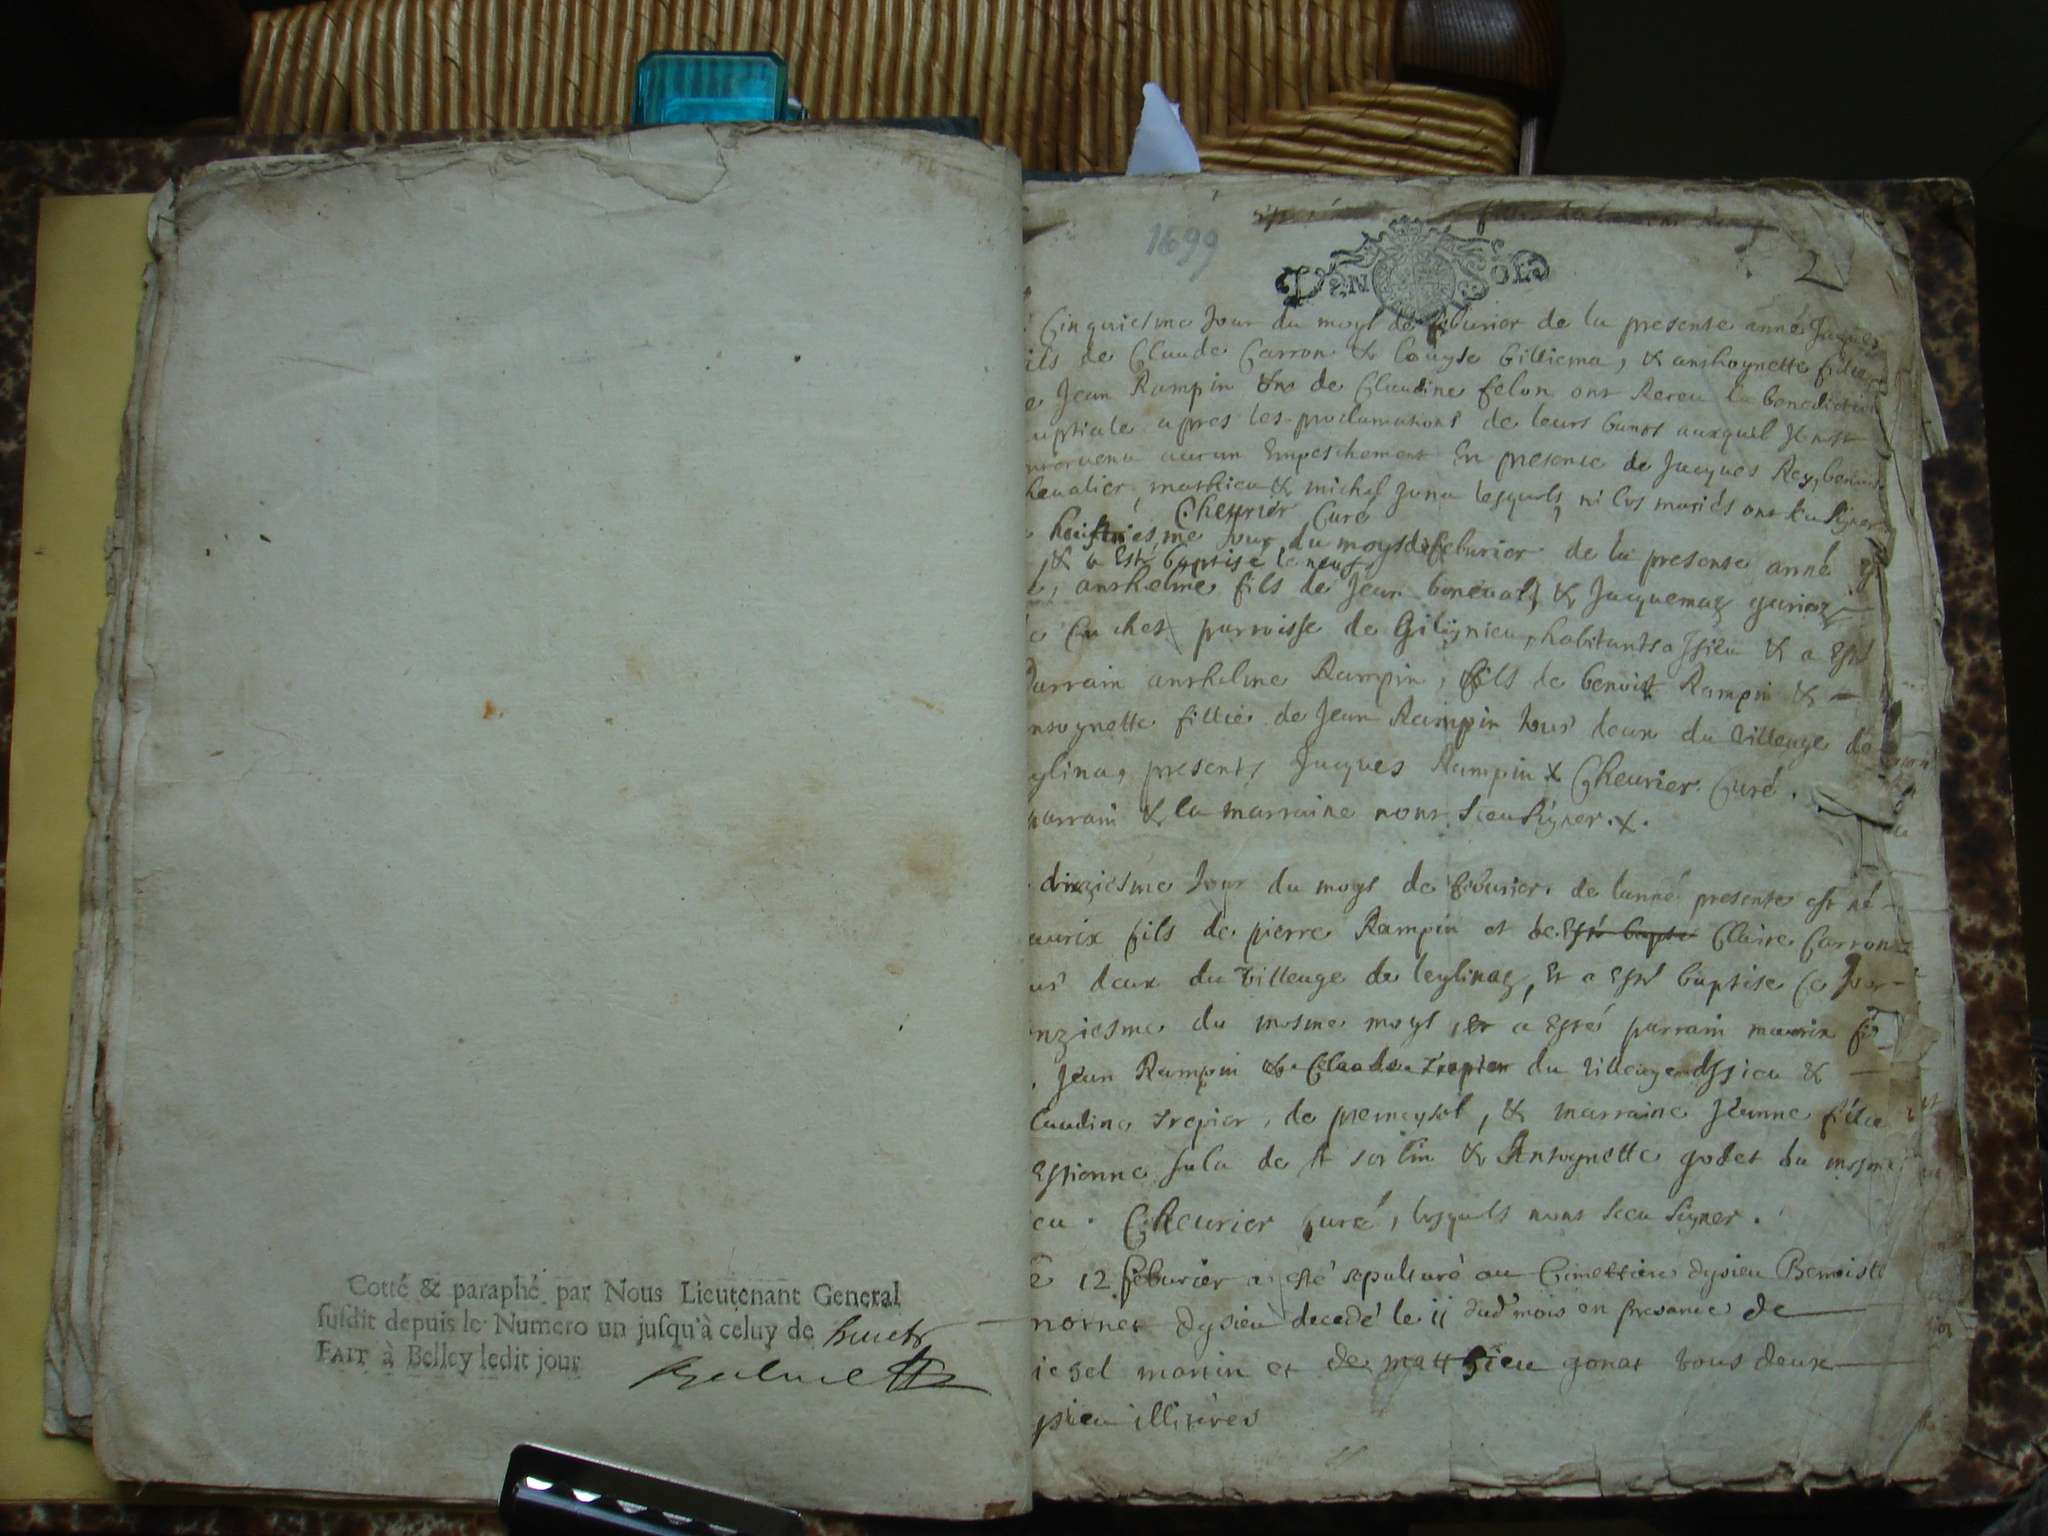 Cotté & paraphé par Nous Lieutenant General
susdit depuis le Numero un jusqu'à celuy de huict
FAIT à Belley ledit jour
1699
2
Cinquiesme Jour du moys de feburier de la presente anné Jaques
ils de Claude Carron & Louyse & anthoynette fillie
Jean Rampin & de Claudine felon ont Receu la benediction
uptiale apres les proclamations de leurs bants auxquel Il nest
aucun Empeschement En presence de Jacques Rey, benoit
hevalier, mathieu & michel lesquels, ni les mariés ont sceu signer
Cheurier Curé
huictiesme Jour du moys de feburier de la presente anné
& a Esté baptisé le neuf
anthelme fils de Jean & Jacquemaz
Cuchet parroisse de habitants a Jsieu & a Esté
parrain anthelme Rampin, fils de benoist Rampin &
nthoynette fillie de Jean Rampin tous deux du villeage de
presents Jacques Rampin x Cheurier Curé.
parrain & la marraine nont sceu signer. x.
dixziesme Jour du moys de feburier de lanné presente est né
aurix fils de pierre Rampin et de Esté bapté Claire Carron
us deux du villeage de leylinaz, Et a Esté baptise Ce Jour
nziesme du mesme moys, et a Esté parrain maurix fi
Jean Rampin & Claudu Trepier du villeage dJssieu &
laudine Trepier, de premeysel, & marraine Jeanne fillie
Estienne sula de st sorlin & Antoynette godet du mesme
eu. Cheurier Curé, lesquels nont sceu signer.
e 12 feburier a esté sepulturé au Cimettiere dysieu Benoiste
dysieu decedé le 11 dud mois en presance de
martin et de matthieu gonat tous deux
ysieu illiterés